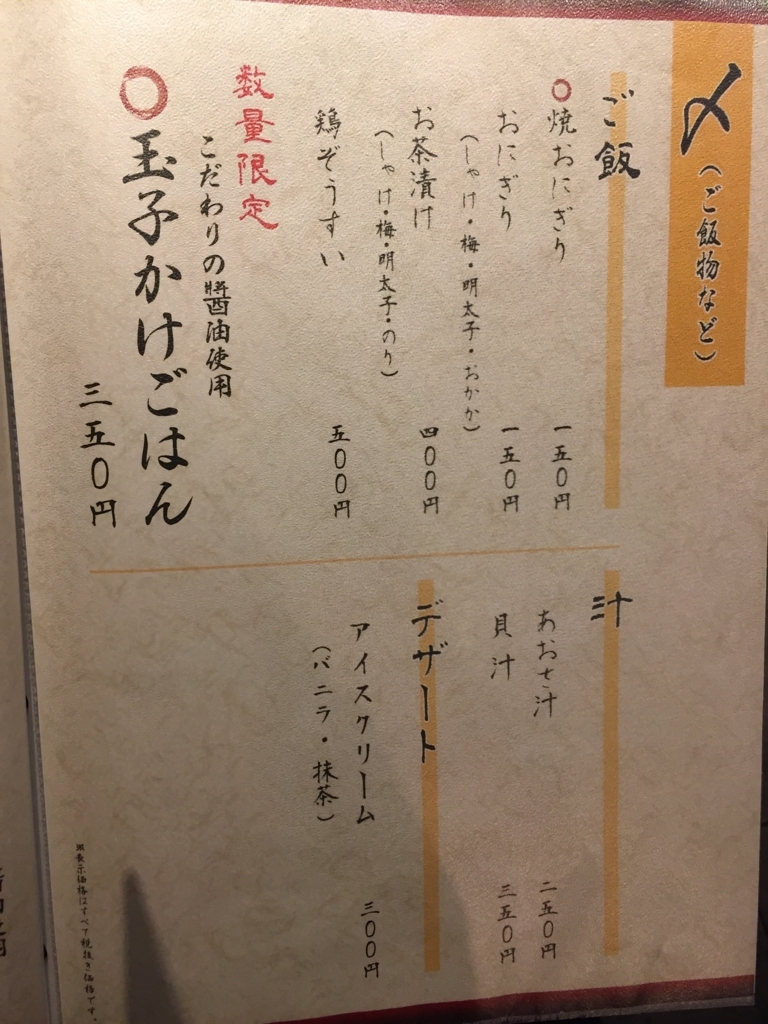 〆(ご飯物など)
ご飯
○焼おにぎり 一五0円
おにぎり 一五0円
(しゃけ・梅・明太子・おかか)
お茶漬け 四00円
(しゃけ・梅・明太子・のり)
鶏ぞうすい 五00円
数量限定
こだわりの醤油使用
○玉子かけごはん
三五0円
汁
あおさ汁 二五0円
貝汁 三五0円
デザート
アイスクリーム 三00円
(バニラ・抹茶)
※表示価格はすべて税抜き価格です。